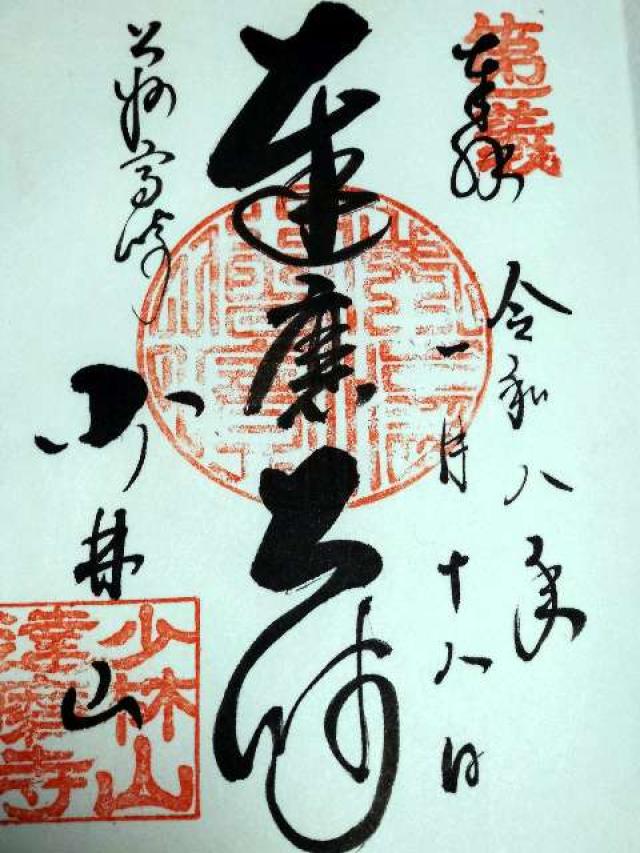 第一義
奉拝
令和八年
一月十八日
達磨大師
上州高崎
少林山
少林山
達磨寺